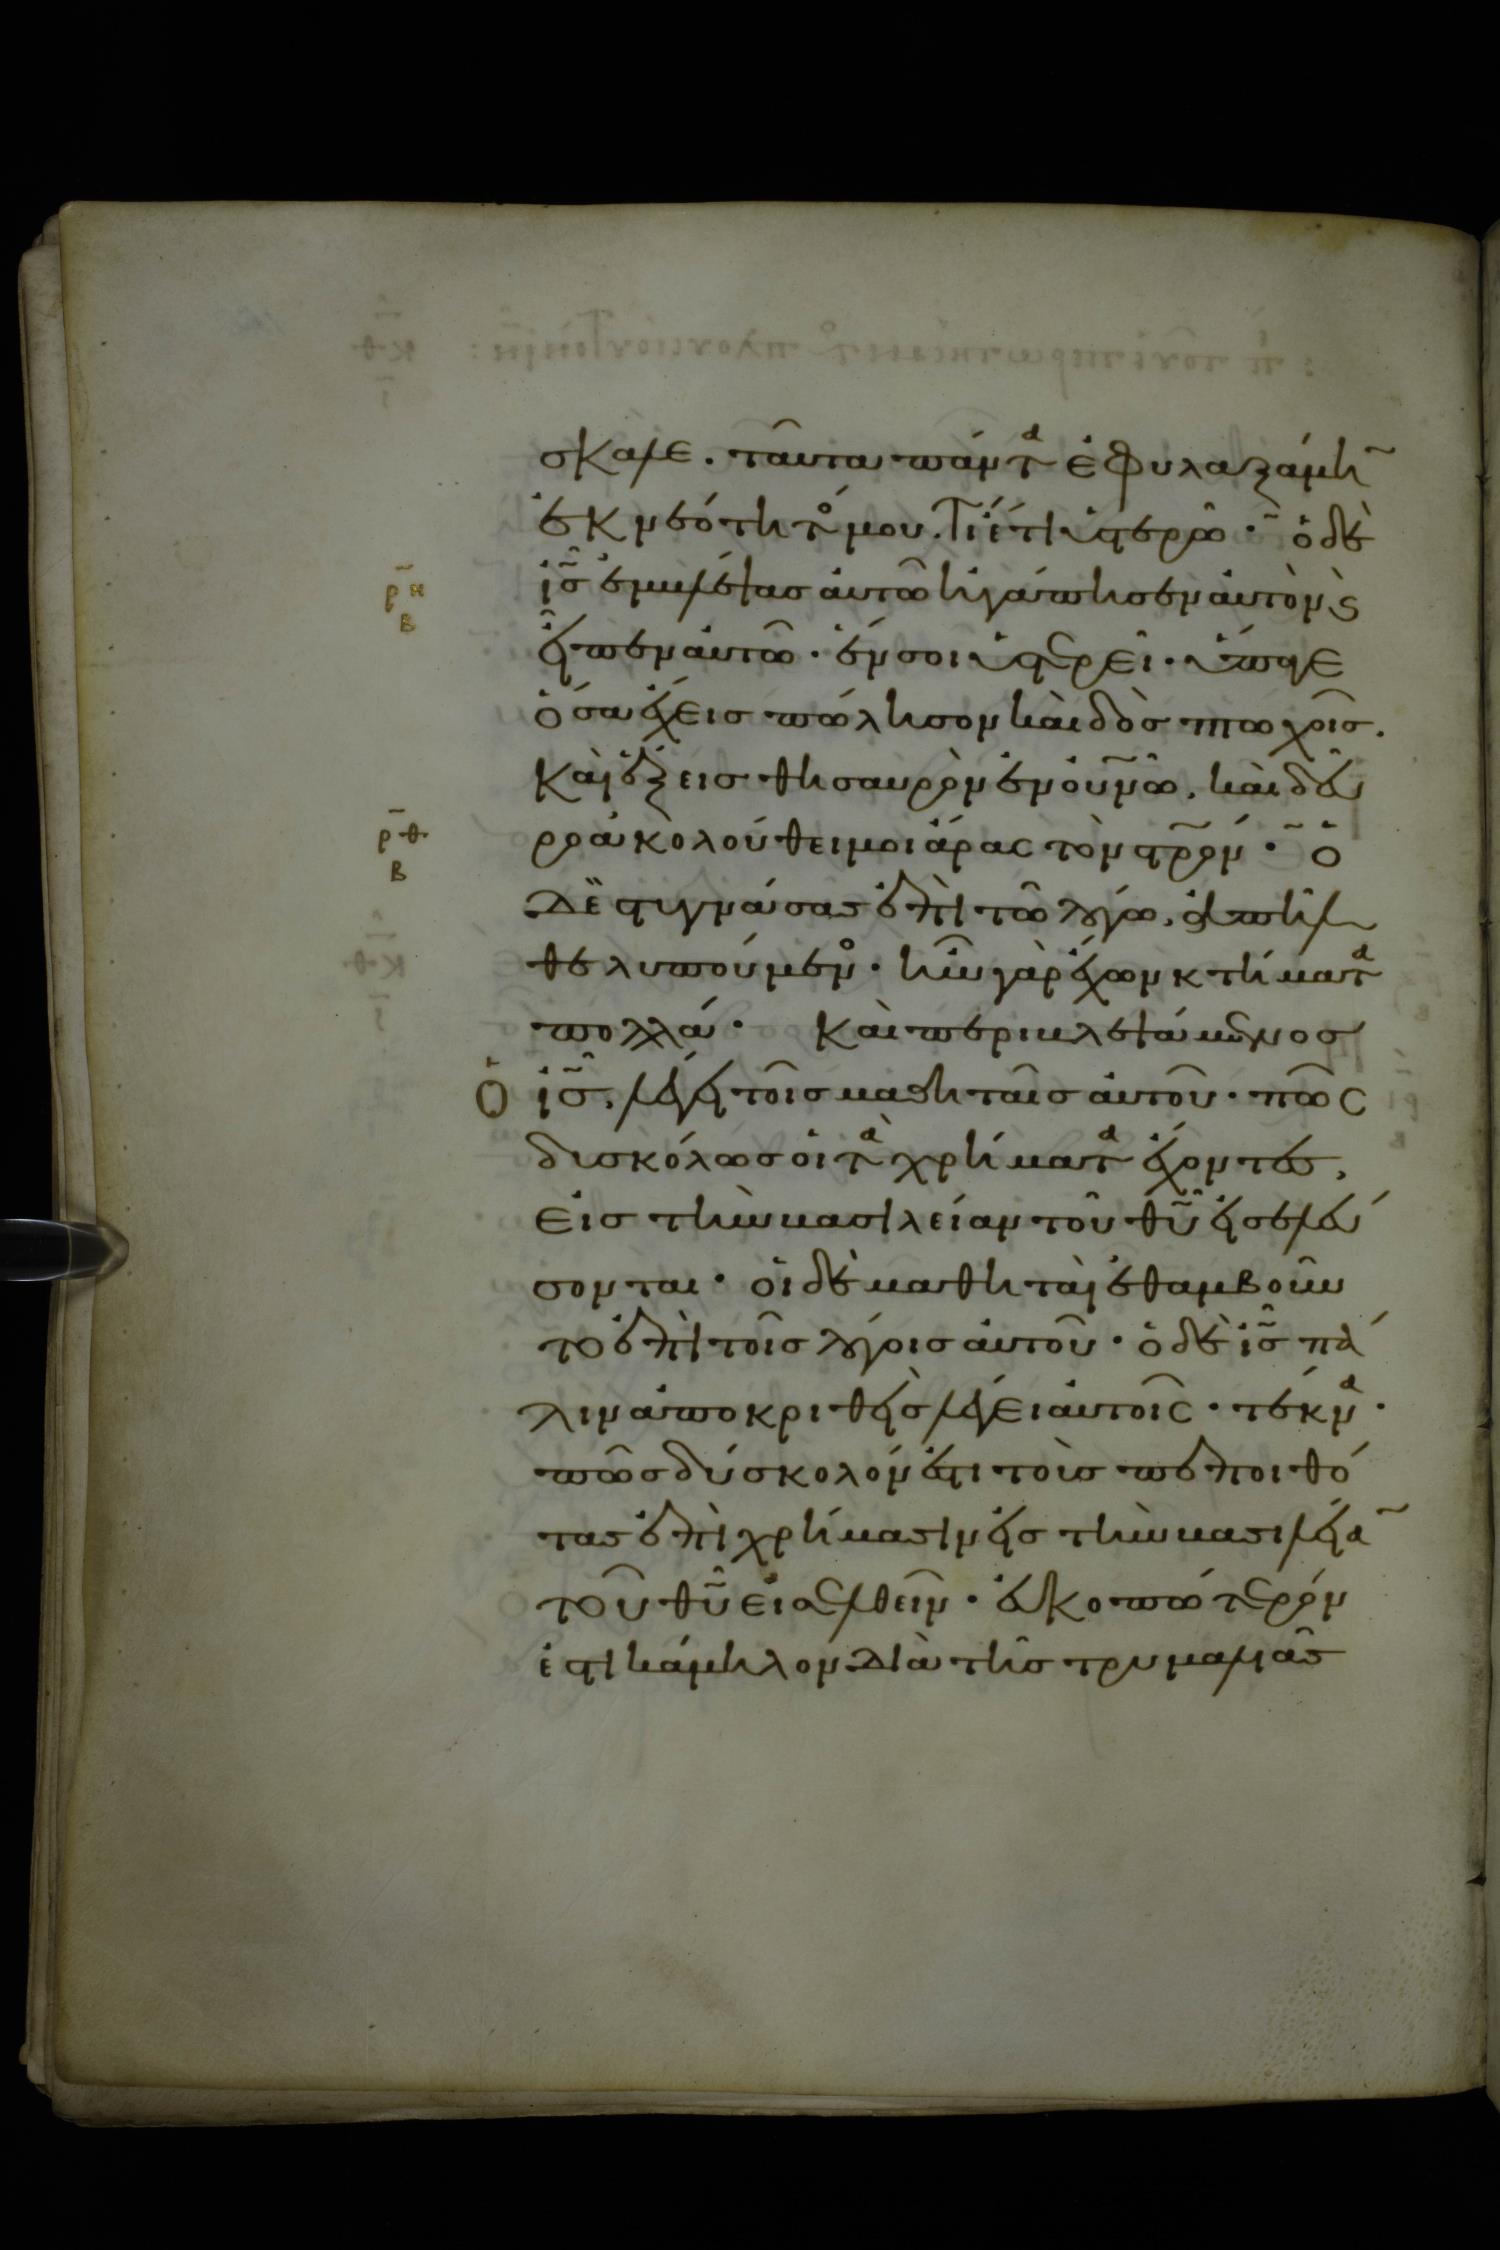 σκαλε. ταῦτα πάντα ἐφυλαξάμη̅
ἐκ νεότητός μου. Τί ἔτι ὑστερῶ· ὁ δὲ
ρ̅η
β
ι̅ς̅ ἐμβλέψας αὐτῶ ἠγάπησεν αὐτὸν ϗ
εἶπεν αὐτῶ· ἕν σοι ὑστερεῖ· ὕπαγε
ὅσα ἔχεις πώλησον καὶ δὸς πτωχοῖς.
καὶ ἕξεις θησαυρὸν ἐν ο̅υ̅ν̅ω̅. καὶ δεῦ
ρ̅θ
β
ρο ἀκολούθει μοι ἄρας τὸν στ̅ρ̅ον· ὁ
δὲ στυγνάσας ἐπὶ τῶ λόγω, ἀπῆλ
θε λυπούμενος· ἦν γὰρ ἔχων κτήματα
πολλά· καὶ περιβλεψάμενος
ὁ ι̅ς̅. λέγει τοῖς μαθηταῖς αὐτοῦ· πῶς
δισκόλως οἱ τὰ χρήματα ἔχοντες,
εἰς τὴν βασιλείαν τοῦ θ̅υ̅ εἰσελεύ
σονται· οἱ δὲ μαθηταὶ ἐθαμβοῦν
το ἐπὶ τοῖς λόγοις αὐτοῦ· ὁ δὲ ι̅ς̅ πά
λιν ἀποκριθεὶς λέγει αὐτοῖς· τέκνα·
πῶς δύσκολόν ἐστι τοὺς πεποιθό
τας ἐπὶ χρήμασιν εἰς τὴν βασιλεία̅
τοῦ θ̅υ̅ εἰσελθεῖν· εὐκοπώτερόν
ἐστι κάμηλον διὰ τῆς τρυμαλιᾶς